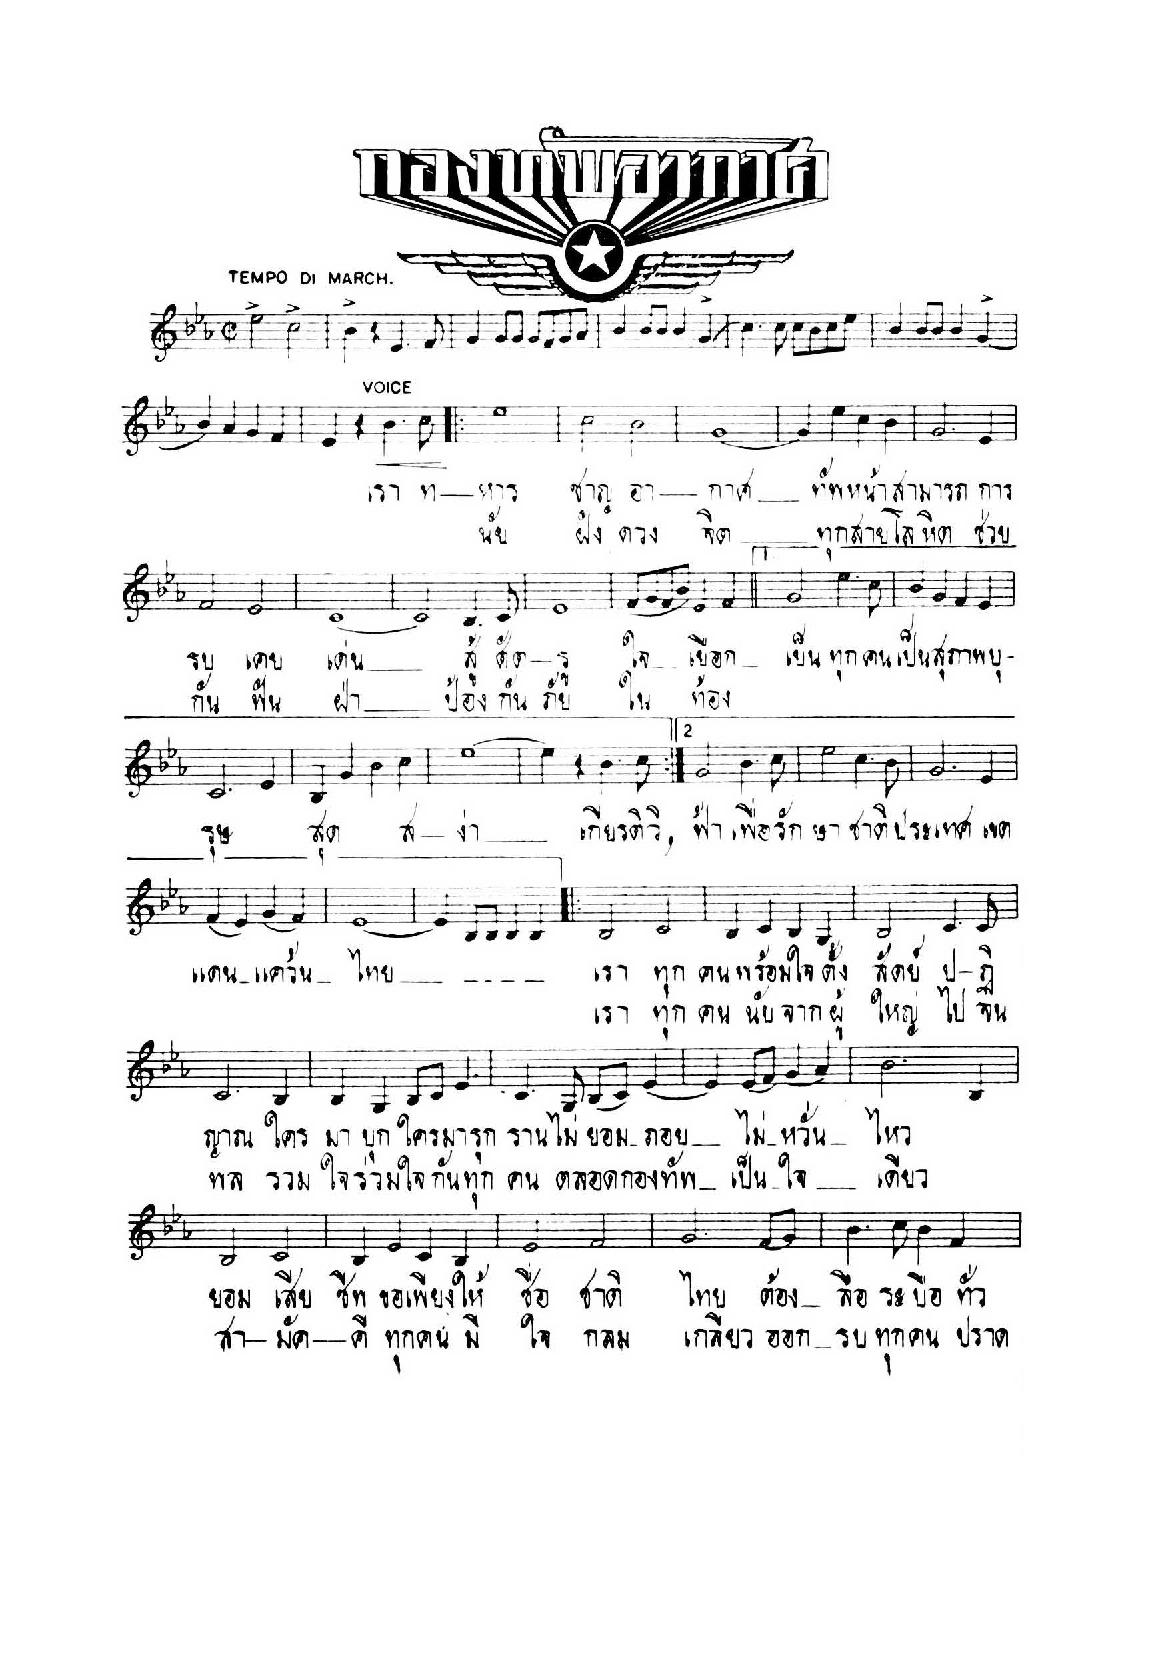 กองทัพอากาศ
TEMPO DI MARCH.
VOICE
เรา ท—หาร ชาญ อา—กาศ___ ทัพหน้าสามารถ การ
นัย ฝัง ดวง จิต___ ทุกสายโลหิต ช่วย
1
รบ เคย เด่น___ สู้ ศัต—รู ใจ_ เยือก_ เย็น ทุกคนเป็นสุภาพบุ-
กัน ฟัน ฝ่า___ ป้อง กัน ภัย ใน ท้อง
2
รุษ สุด ส—ง่า___ เกียรติวิ, ฟ้า เพื่อรัก ษา ชาติ ประเทศ เขต
แดน_แคว้น_ ไทย___ _ _ _ _ เรา ทุก คนพร้อมใจ ตั้ง สัตย์ ป-ฏิ
เรา ทุก คน นับจากผู้ ใหญ่ ไป จน
ญาณ ใคร มา บุก ใครมารุก รานไม่ ยอม_ถอย_ ไม่_หวั่น_ ไหว
พล รวม ใจร่วมใจกันทุก คน ตลอดกองทัพ_ เป็น_ใจ_ เดียว
ยอม เสีย ชีพ ขอเพียงให้ ชื่อ ชาติ ไทย ต้อง_ ลือ ระบือ ทั่ว
สา—มัค—คี ทุกคน มี ใจ กลม เกลียว ออก_รบ ทุกคน ปราด